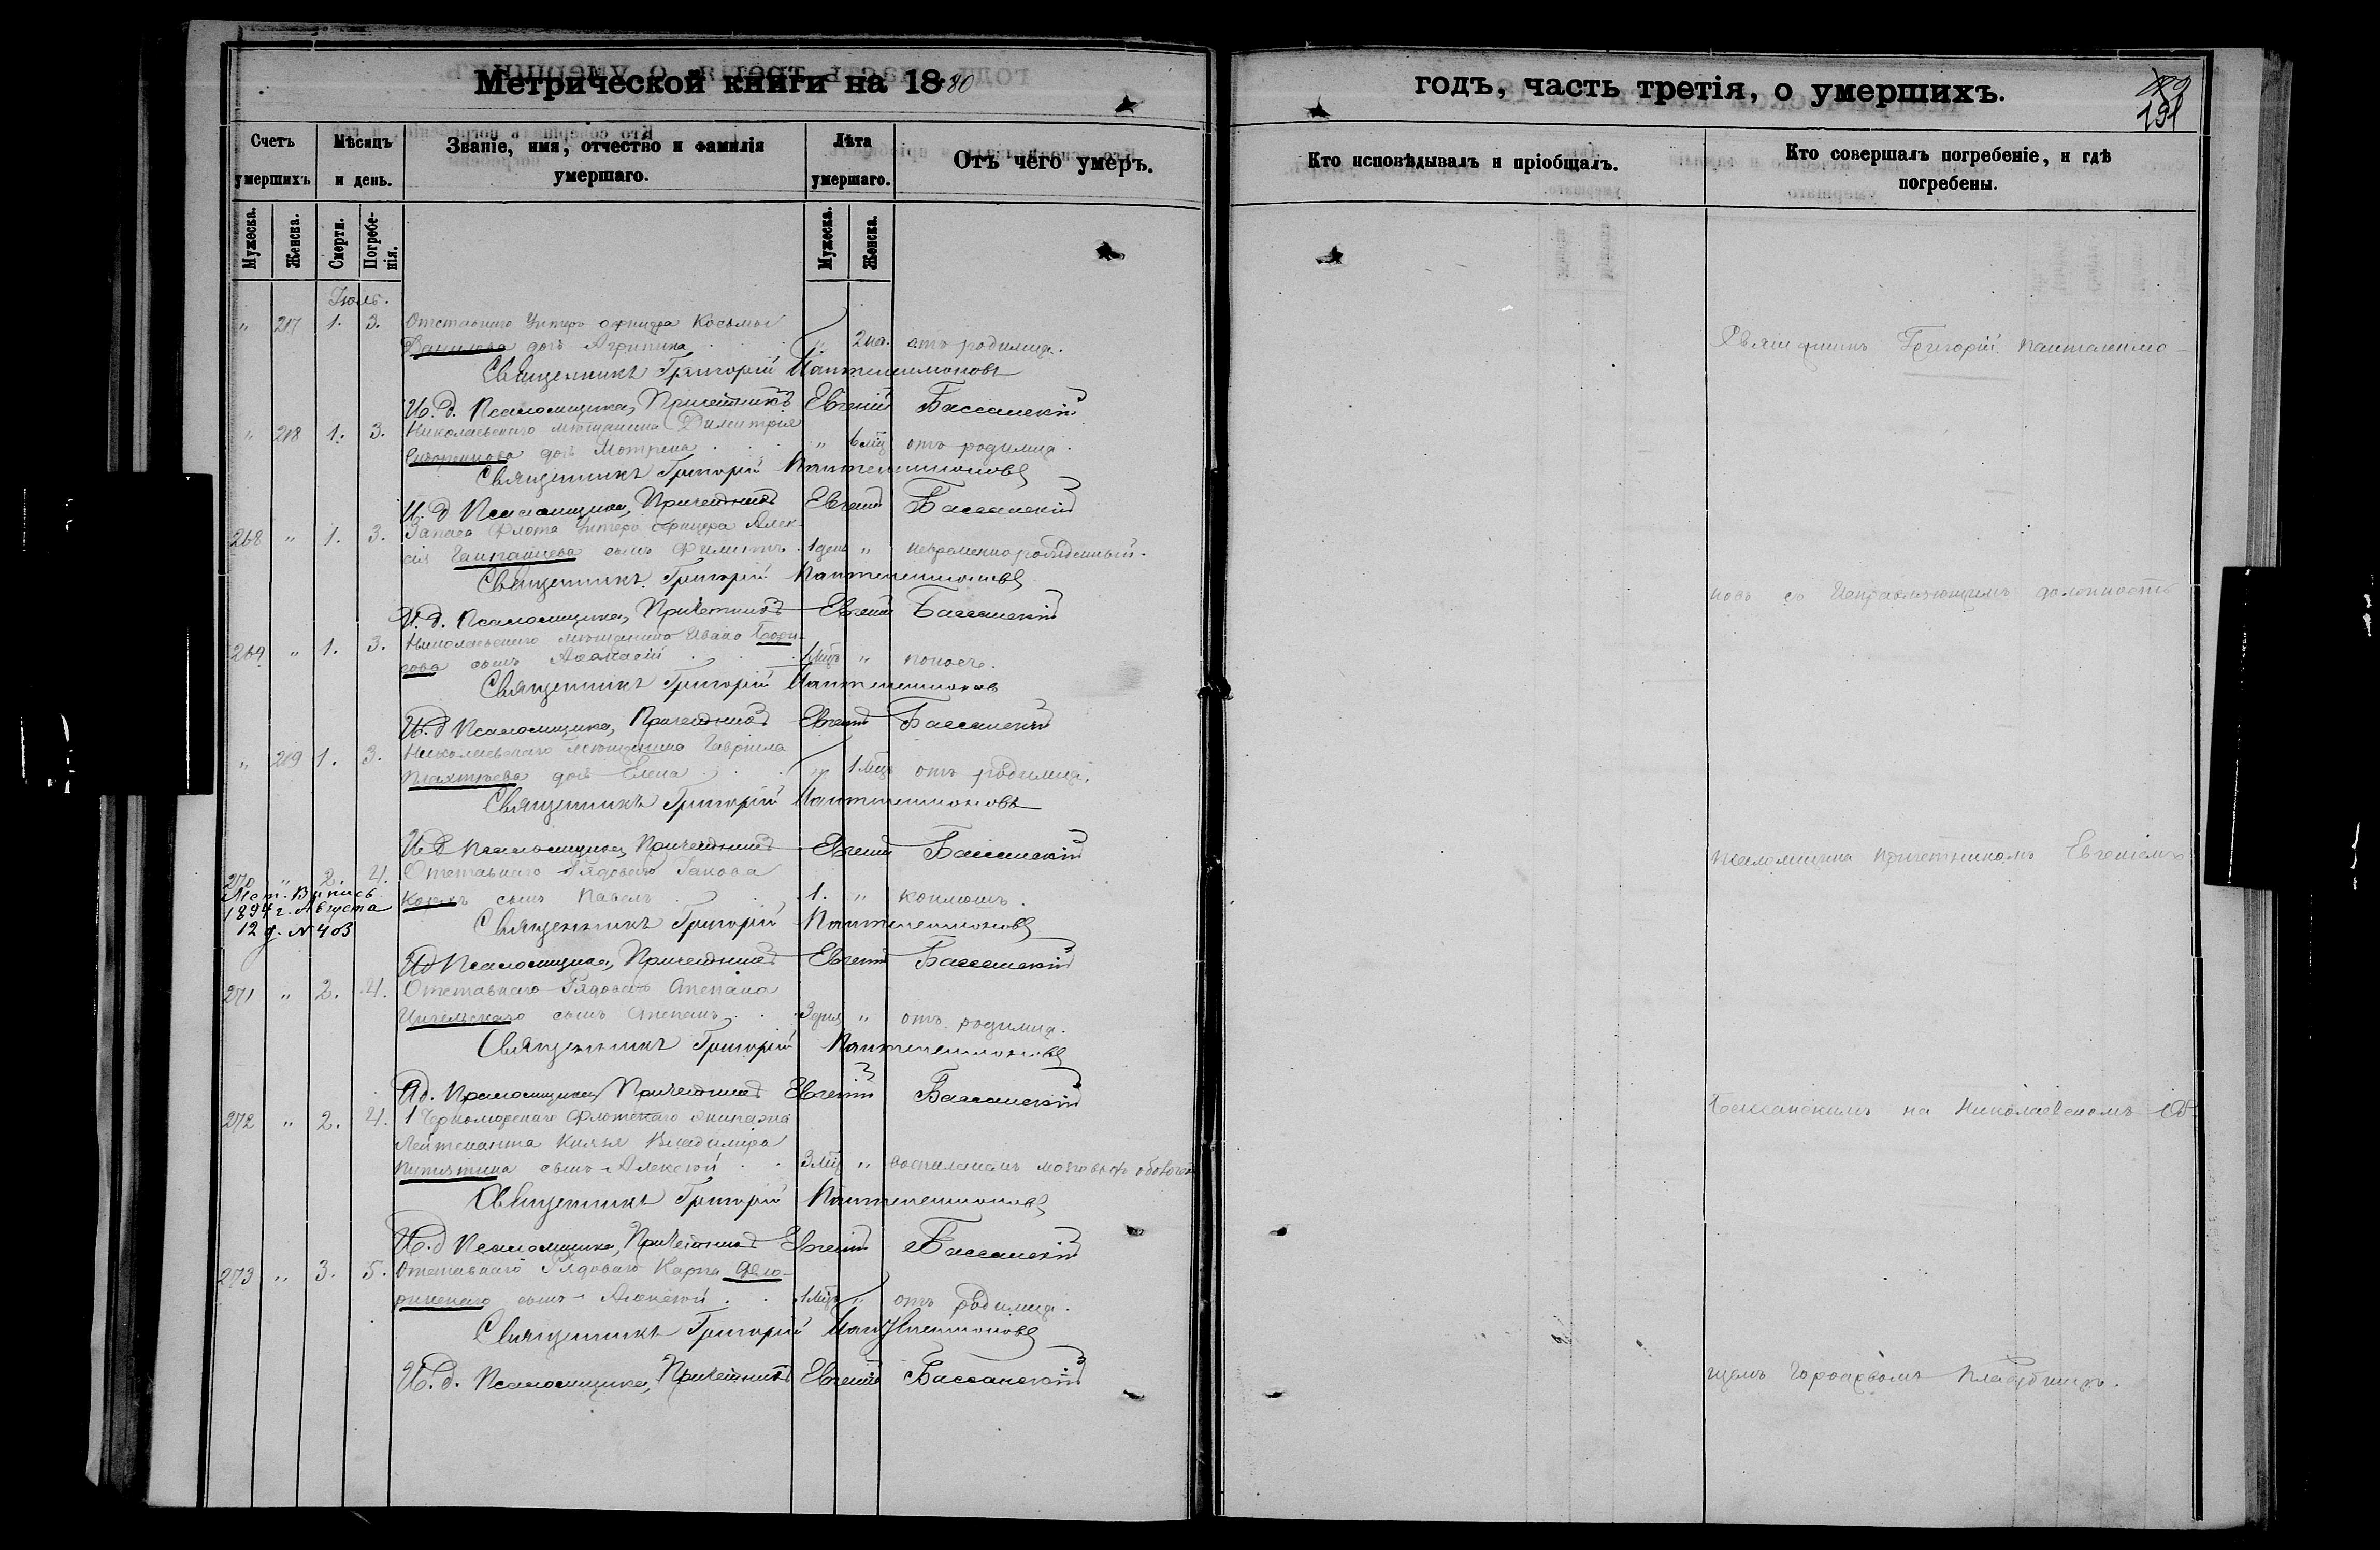 Метрической книги на 1880
годъ, часть третія, о умершихъ.
191
Счетъ умершихъ
Мѣсяцъ и день.
Званіе, имя, отчество и фамилія умершаго.
Лѣта умершаго.
Отъ чего умеръ.
Кто исповѣдывалъ и пріобщалъ.
Кто совершалъ погребеніе, и гдѣ погребены.
Мужеска.
Женска.
Смерти.
Погребенія.
Мужеска.
Женска.
Іюль.
" 217 1. 3. Отставнаго Унтеръ офицера Косьмы
Данилова дочь Агрипина " отъ родимца.
Священникъ Григорій Пантелеимоновъ
И. д. Псаломщика, Причетникъ Евгеній Бассанскій
" 218 1. 3. Николаевскаго мѣщанина Димитрія
дочь Мотрена " 6 мѣц отъ родимца.
Священникъ Григорій Пантелеимоновъ
И. д Псаломщика, Причетникъ Евгеній Бассанскій
268 " 1. 3. Запаса Флота Унтеръ офицера Алек-
сія сынъ Филиппъ 1 день " невременнорожденный.
Священникъ Григорій Пантелеимоновъ
И. д. Псаломщика, Причетникъ Евгеній Бассанскій
269 " 1. 3. Николаевскаго мѣщанина Ивана
сынъ Аѳанасій 1 мѣцъ " поносъ.
Священникъ Григорій Пантелеимоновъ
И. д Псаломщика, Причетникъ Евгеній Бассанскій
" 219 1. 3. Николаевскаго мѣщанина Гавріила
дочь Елена " 1 мѣцъ отъ родимца.
Священникъ Григорій Пантелеимоновъ
И д Псаломщика, Причетникъ Евгеній Бассанскій
270 " 2. 4. Отставнаго Рядоваго Іакова
сынъ Павелъ 1. " коклюшъ.
Мет. Выпись
1894 г. Августа
12 д. N 403
Священникъ Григорій Пантелеимоновъ
И д Псаломщика, Причетникъ Евгеній Бассанскій
271 " 2. 4. Отставнаго Рядоваго Степана
сынъ Степанъ 3 дня " отъ родимца.
Священникъ Григорій Пантелеимоновъ
И д. Псаломщика, Причетникъ Евгеній Бассанскій
272 " 2. 4. 1 Черноморскаго Флотскаго экипажа
Лейтенанта Князя Владиміра
Путятина сынъ Алексѣй 3 мѣц "
Священникъ Григорій Пантелеимоновъ
И. д Псаломщика, Причетникъ Евгеній Бассанскій
273 " 3. 5. Отставнаго Рядоваго Карпа
сынъ Алексѣй 1 мѣцъ " отъ родимца.
Священникъ Григорій Пантелеимоновъ
И. д. Псаломщика, Причетникъ Евгеній Бассанскій
Священникъ Григорій Пантелеимо-
новъ съ Исправляющимъ должность
псаломщика причетникомъ Евгеніемъ
Бассанскимъ на Николаевскомъ Об-
щемъ Городскомъ Кладбищѣ.